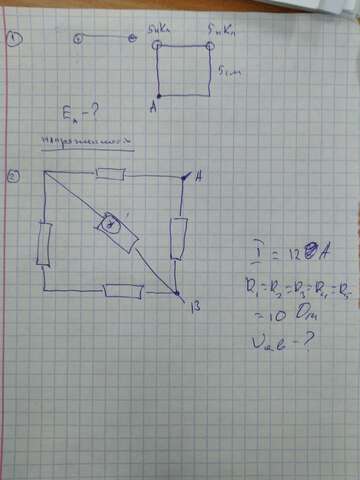 ①
5нКл 5нКл
5см
A
E_A - ?
напряженность
②
A
B
I = 12 A
R₁=R₂=R₃=R₄=R₅
= 10 Ом
U_ab - ?